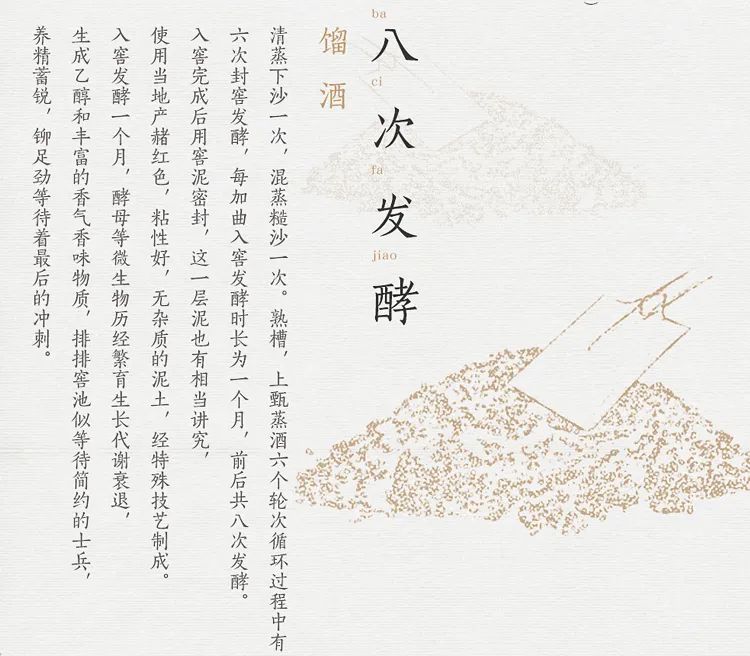 ba
八
ci
次
fa
发
jiao
酵
馏酒
清蒸下沙一次，混蒸糙沙一次。熟槽，上甄蒸酒六个轮次循环过程中有
六次封窖发酵，每加曲入窖发酵时长为一个月，前后共八次发酵。
入窖完成后用窖泥密封，这一层泥也有相当讲究，
使用当地产赭红色，粘性好，无杂质的泥土，经特殊技艺制成。
入窖发酵一个月，酵母等微生物历经繁育生长代谢衰退，
生成乙醇和丰富的香气香味物质，排排窖池似等待简约的士兵，
养精蓄锐，铆足劲等待着最后的冲刺。